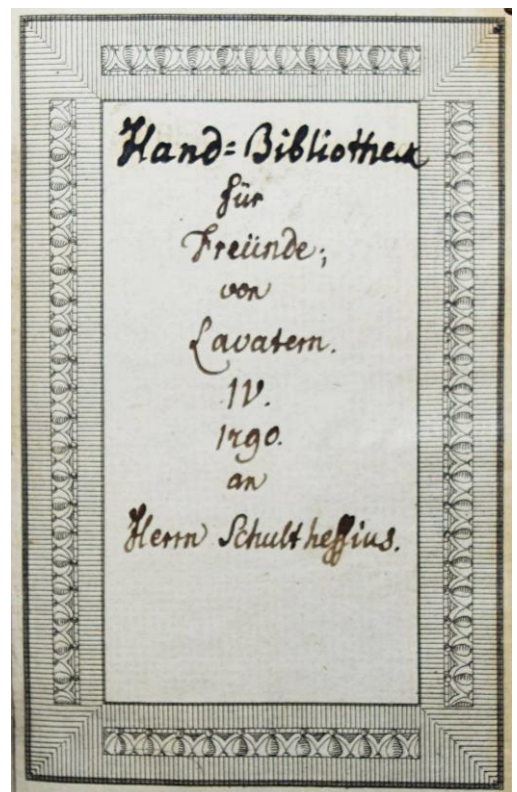 Hand=Bibliotheck
für
Freünde;
von
Lavatern.
IV.
1790.
an
Herrn Schulthessius.